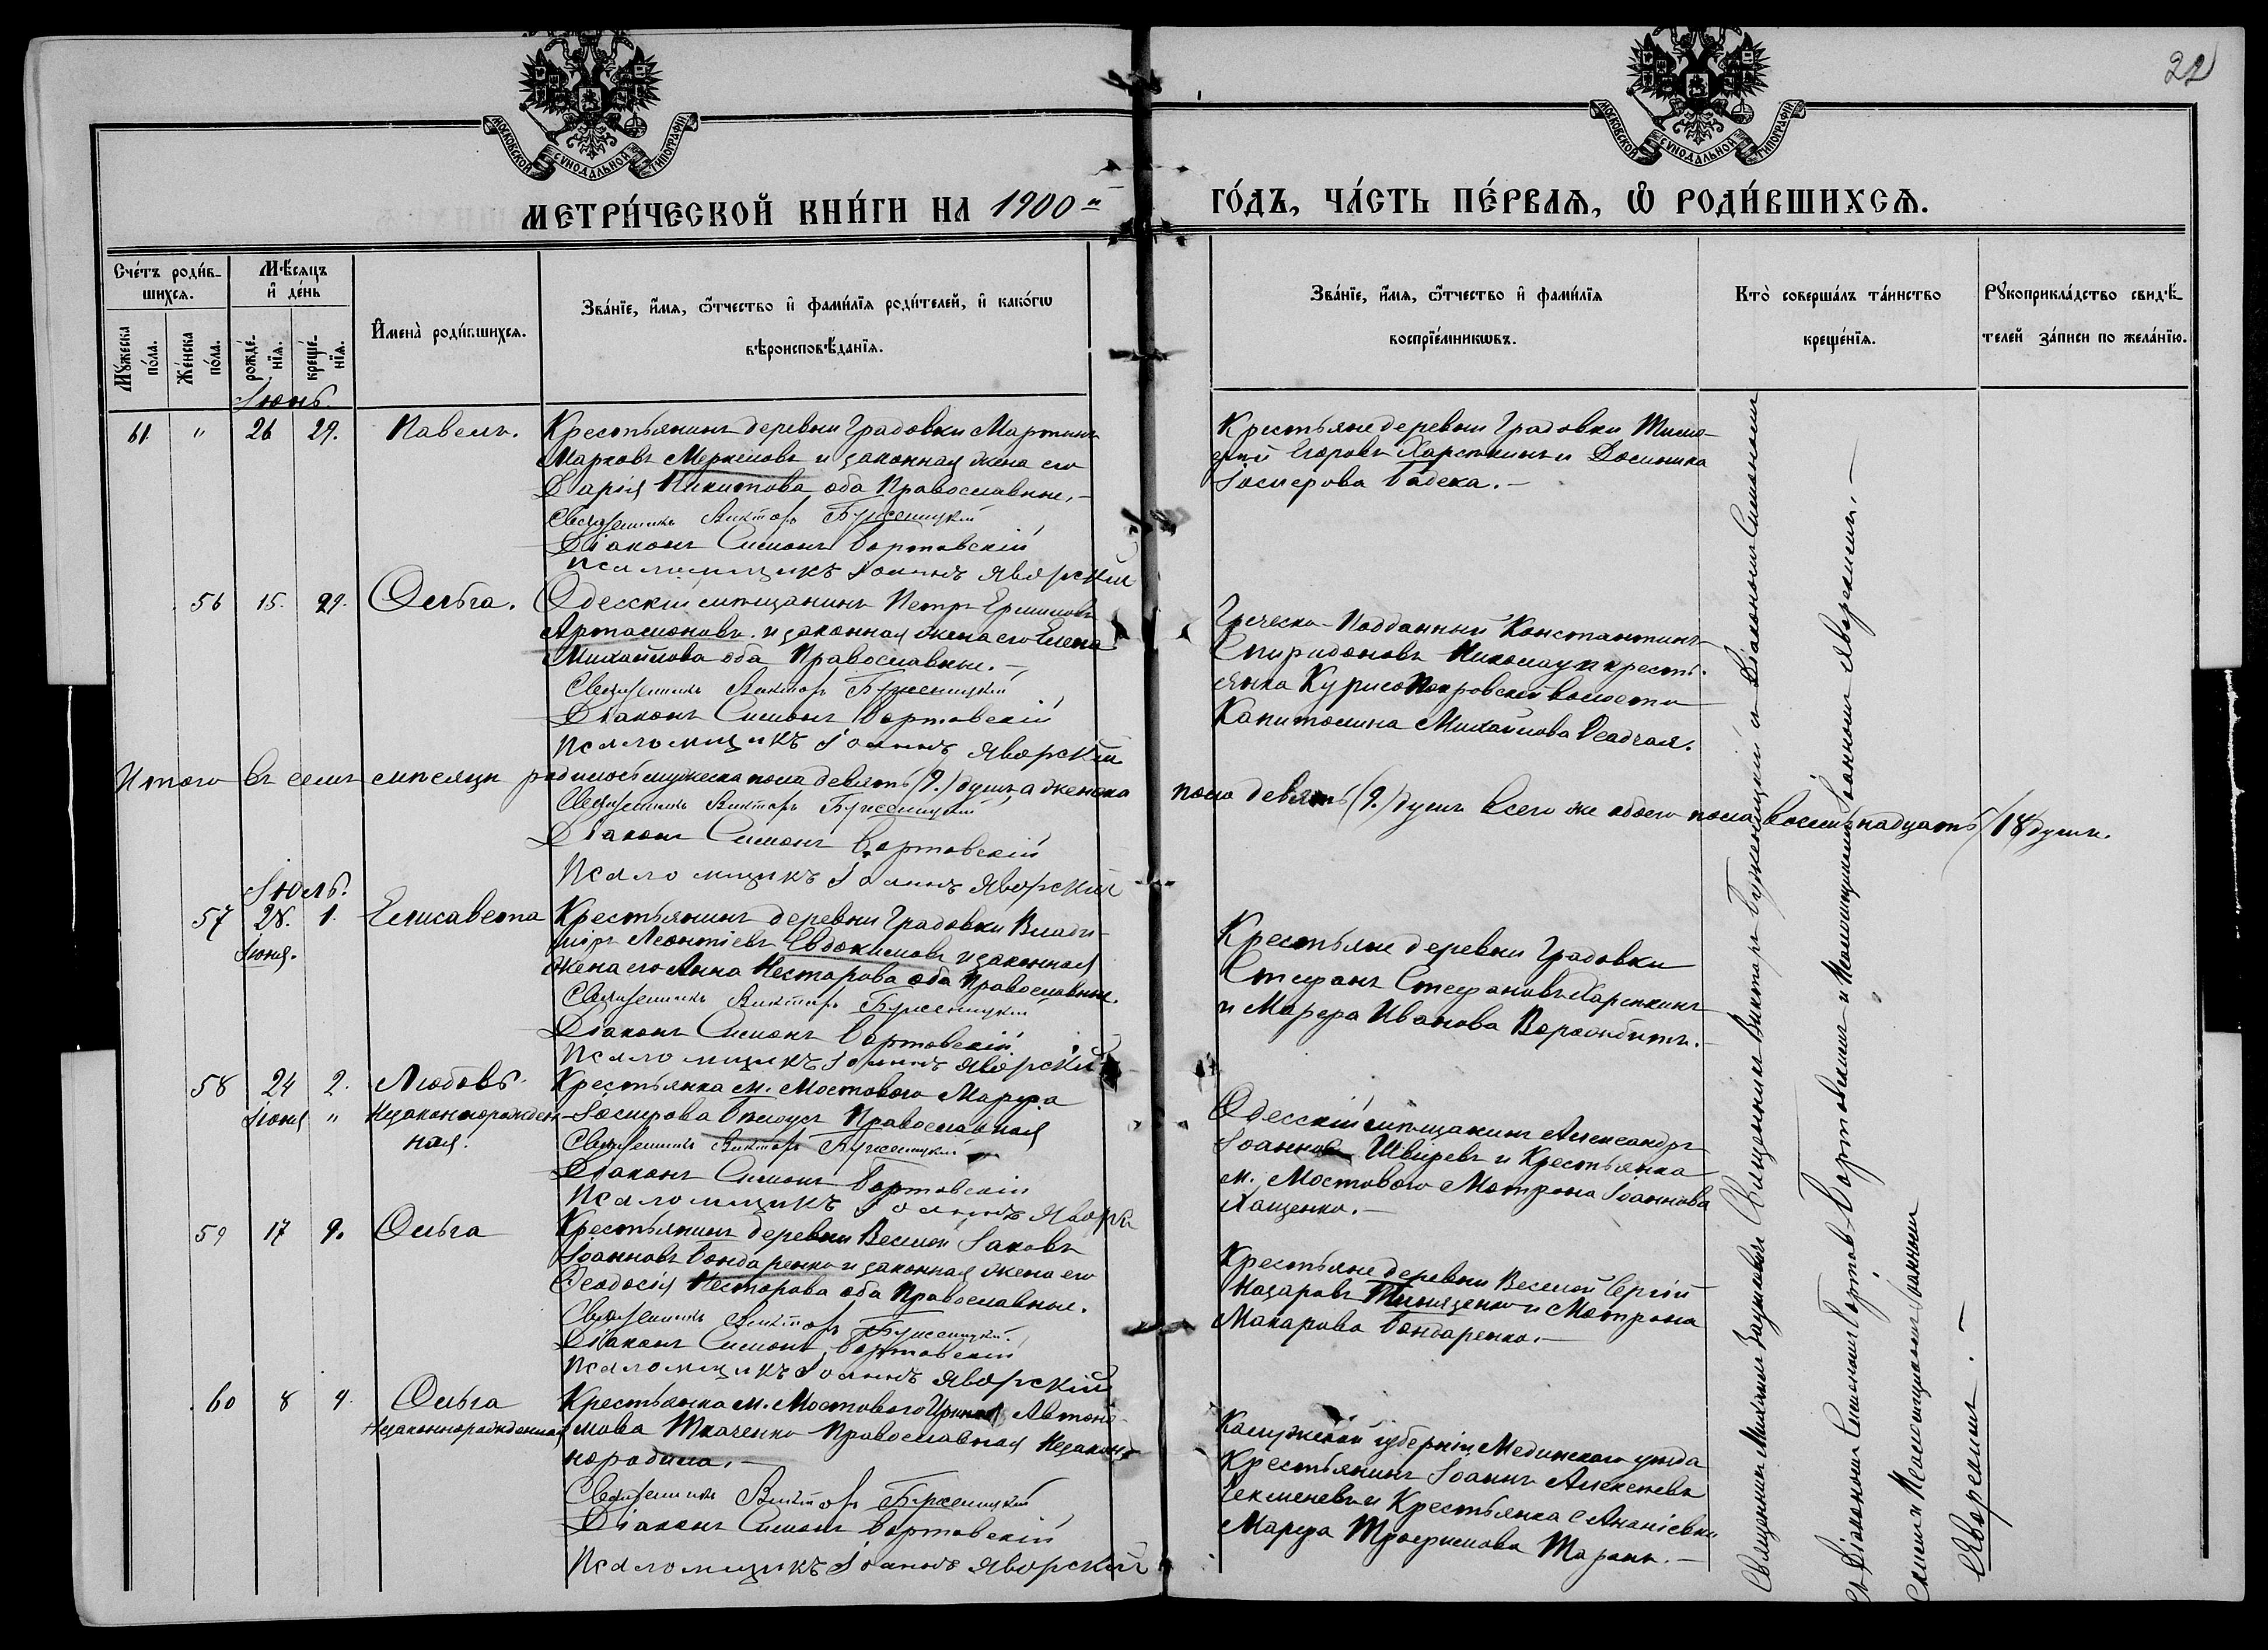 22
МОСКОВСКОЙ СУНОДАЛЬНОЙ ТИПОГРАФІИ
МОСКОВСКОЙ СУНОДАЛЬНОЙ ТИПОГРАФІИ
МЕТРИ́ЧЕСКОЙ КНИ́ГИ НА 1900 й ГО́ДЪ, ЧА́СТЬ ПЕ́РВАѦ, Ѡ҆ РОДИ́ВШИХСѦ.
Сче́тъ роди́в-
шихсѧ.
Мꙋ́жеска по́ла.
Же́нска по́ла.
Мѣ́сѧцъ
и҆ де́нь
рожде́-нїѧ.
креще́-нїѧ.
И҆мена̀ роди́вшихсѧ.
Зва́нїе, и҆́мѧ, ѻ҆́тчество и҆ фами́лїѧ роди́телей, и҆ како́гѡ
вѣроисповѣ́данїѧ.
Зва́нїе, и҆́мѧ, ѻ҆́тчество и҆ фами́лїѧ
воспрїе́мникѡвъ.
Кто̀ соверша́лъ та́инство
креще́нїѧ.
Рꙋкоприкла́дство свидѣ́-
телей за́писи по жела́нїю.
Іюнь.
61. " 26 29. Павелъ.
Крестьянинъ деревни Градовки Мартинъ
Марковъ Меркеловъ и законная жена его
Дарія Никитова оба Православные.-
Священникъ Викторъ Буженицкій
Діаконъ Симонъ Бортовскій
Псаломщикъ Іоаннъ Яворскій
Крестьяне деревни Градовки Тимо-
фей Егоровъ Харсткинъ и Домника
Іосифова Бабека.-
56 15. 29. Ольга.
Одесскій мѣщанинъ Петръ Ермиловъ
Артамоновъ и законная жена его Елена
Михайлова оба Православные.-
Священникъ Викторъ Буженицкій
Діаконъ Симонъ Бортовскій
Псаломщикъ Іоаннъ Яворскій
Греческо-Подданный Константинъ
Спиридоновъ Николау и кресть-
янка Курисо Покровской волости
Капитолина Михайлова Осадчая.
Итого въ семъ мѣсяцѣ родилось мужеска пола девять (9.) душъ, а женска пола девять (9.) душъ всего же обоего пола восемьнадцать (18 душъ.
Священникъ Викторъ Буженицкій
Діаконъ Симонъ Бортовскій
Псаломщикъ Іоаннъ Яворскій
Іюль.
57 28. 1. Елисавета
Іюня.
Крестьянинъ деревни Градовки Влади-
міръ Леонтіевъ Евдокимовъ и законная
жена его Анна Нестарова оба Православные.
Священникъ Викторъ Буженицкій
Діаконъ Симонъ Бортовскій
Псаломщикъ Іоаннъ Яворскій
Крестьяне деревни Градовки
Стефанъ Стефановъ Харсткинъ
и Марфа Иванова Ворожбитъ.-
58 24 2. Любовь.
Іюня " Незаконнорожден-
ная.
Крестьянка м. Мостового Марфа
Іосифова Бѣлоусъ Православная
Священникъ Викторъ Буженицкій
Діаконъ Симонъ Бортовскій
Псаломщикъ Іоаннъ Яворскій
Одесскій мѣщанинъ Александръ
Іоанновъ Швыревъ и Крестьянка
м. Мостового Мотрона Іоаннова
Лащенко.-
59 17 9. Ольга
Крестьянинъ деревни Веселой Іаковъ
Іоанновъ Бондаренко и законная жена его
Феодосія Несторова оба Православные.
Священникъ Викторъ Буженицкій.
Діаконъ Симонъ Бортовскій
Псаломщикъ Іоаннъ Яворскій
Крестьяне деревни Веселой Сергій
Назаровъ и Мотрона
Макарова Бондаренко.-
60 8 9. Ольга
Незаконнорожденная
Крестьянка м. Мостового Ирина Автоно-
мова Ткаченко Православная Незакон-
нородила.-
Священникъ Викторъ Буженицкій
Діаконъ Симонъ Бортовскій
Псаломщикъ Іоаннъ Яворскій
Калужской губерніи Медынскаго уѣзда
Крестьянинъ Іоаннъ Алексѣевъ
Секменевъ и Крестьянка с Ананіевки
Марфа Трофимова Таранъ.-
Священникъ Михаилъ Священникъ Викторъ Буженицкій и Діакономъ Симономъ
съ Діакономъ Симономъ Бортовскимъ и Псаломщикомъ Іоанномъ Яворскимъ.-
скимъ и Псаломщикомъ Іоанномъ
Яворскимъ.-